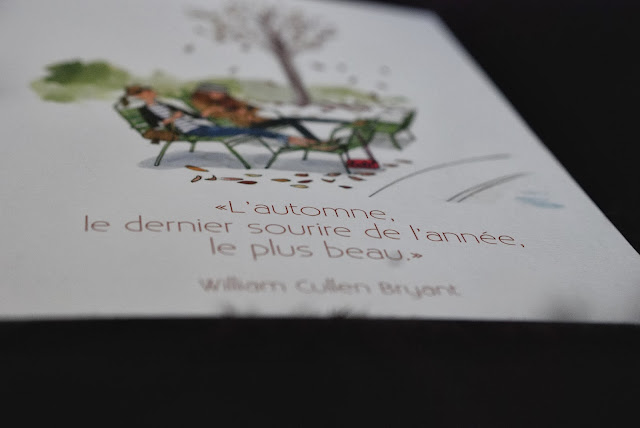 «L'automne,
le dernier sourire de l'année,
le plus beau.»
William Cullen Bryant